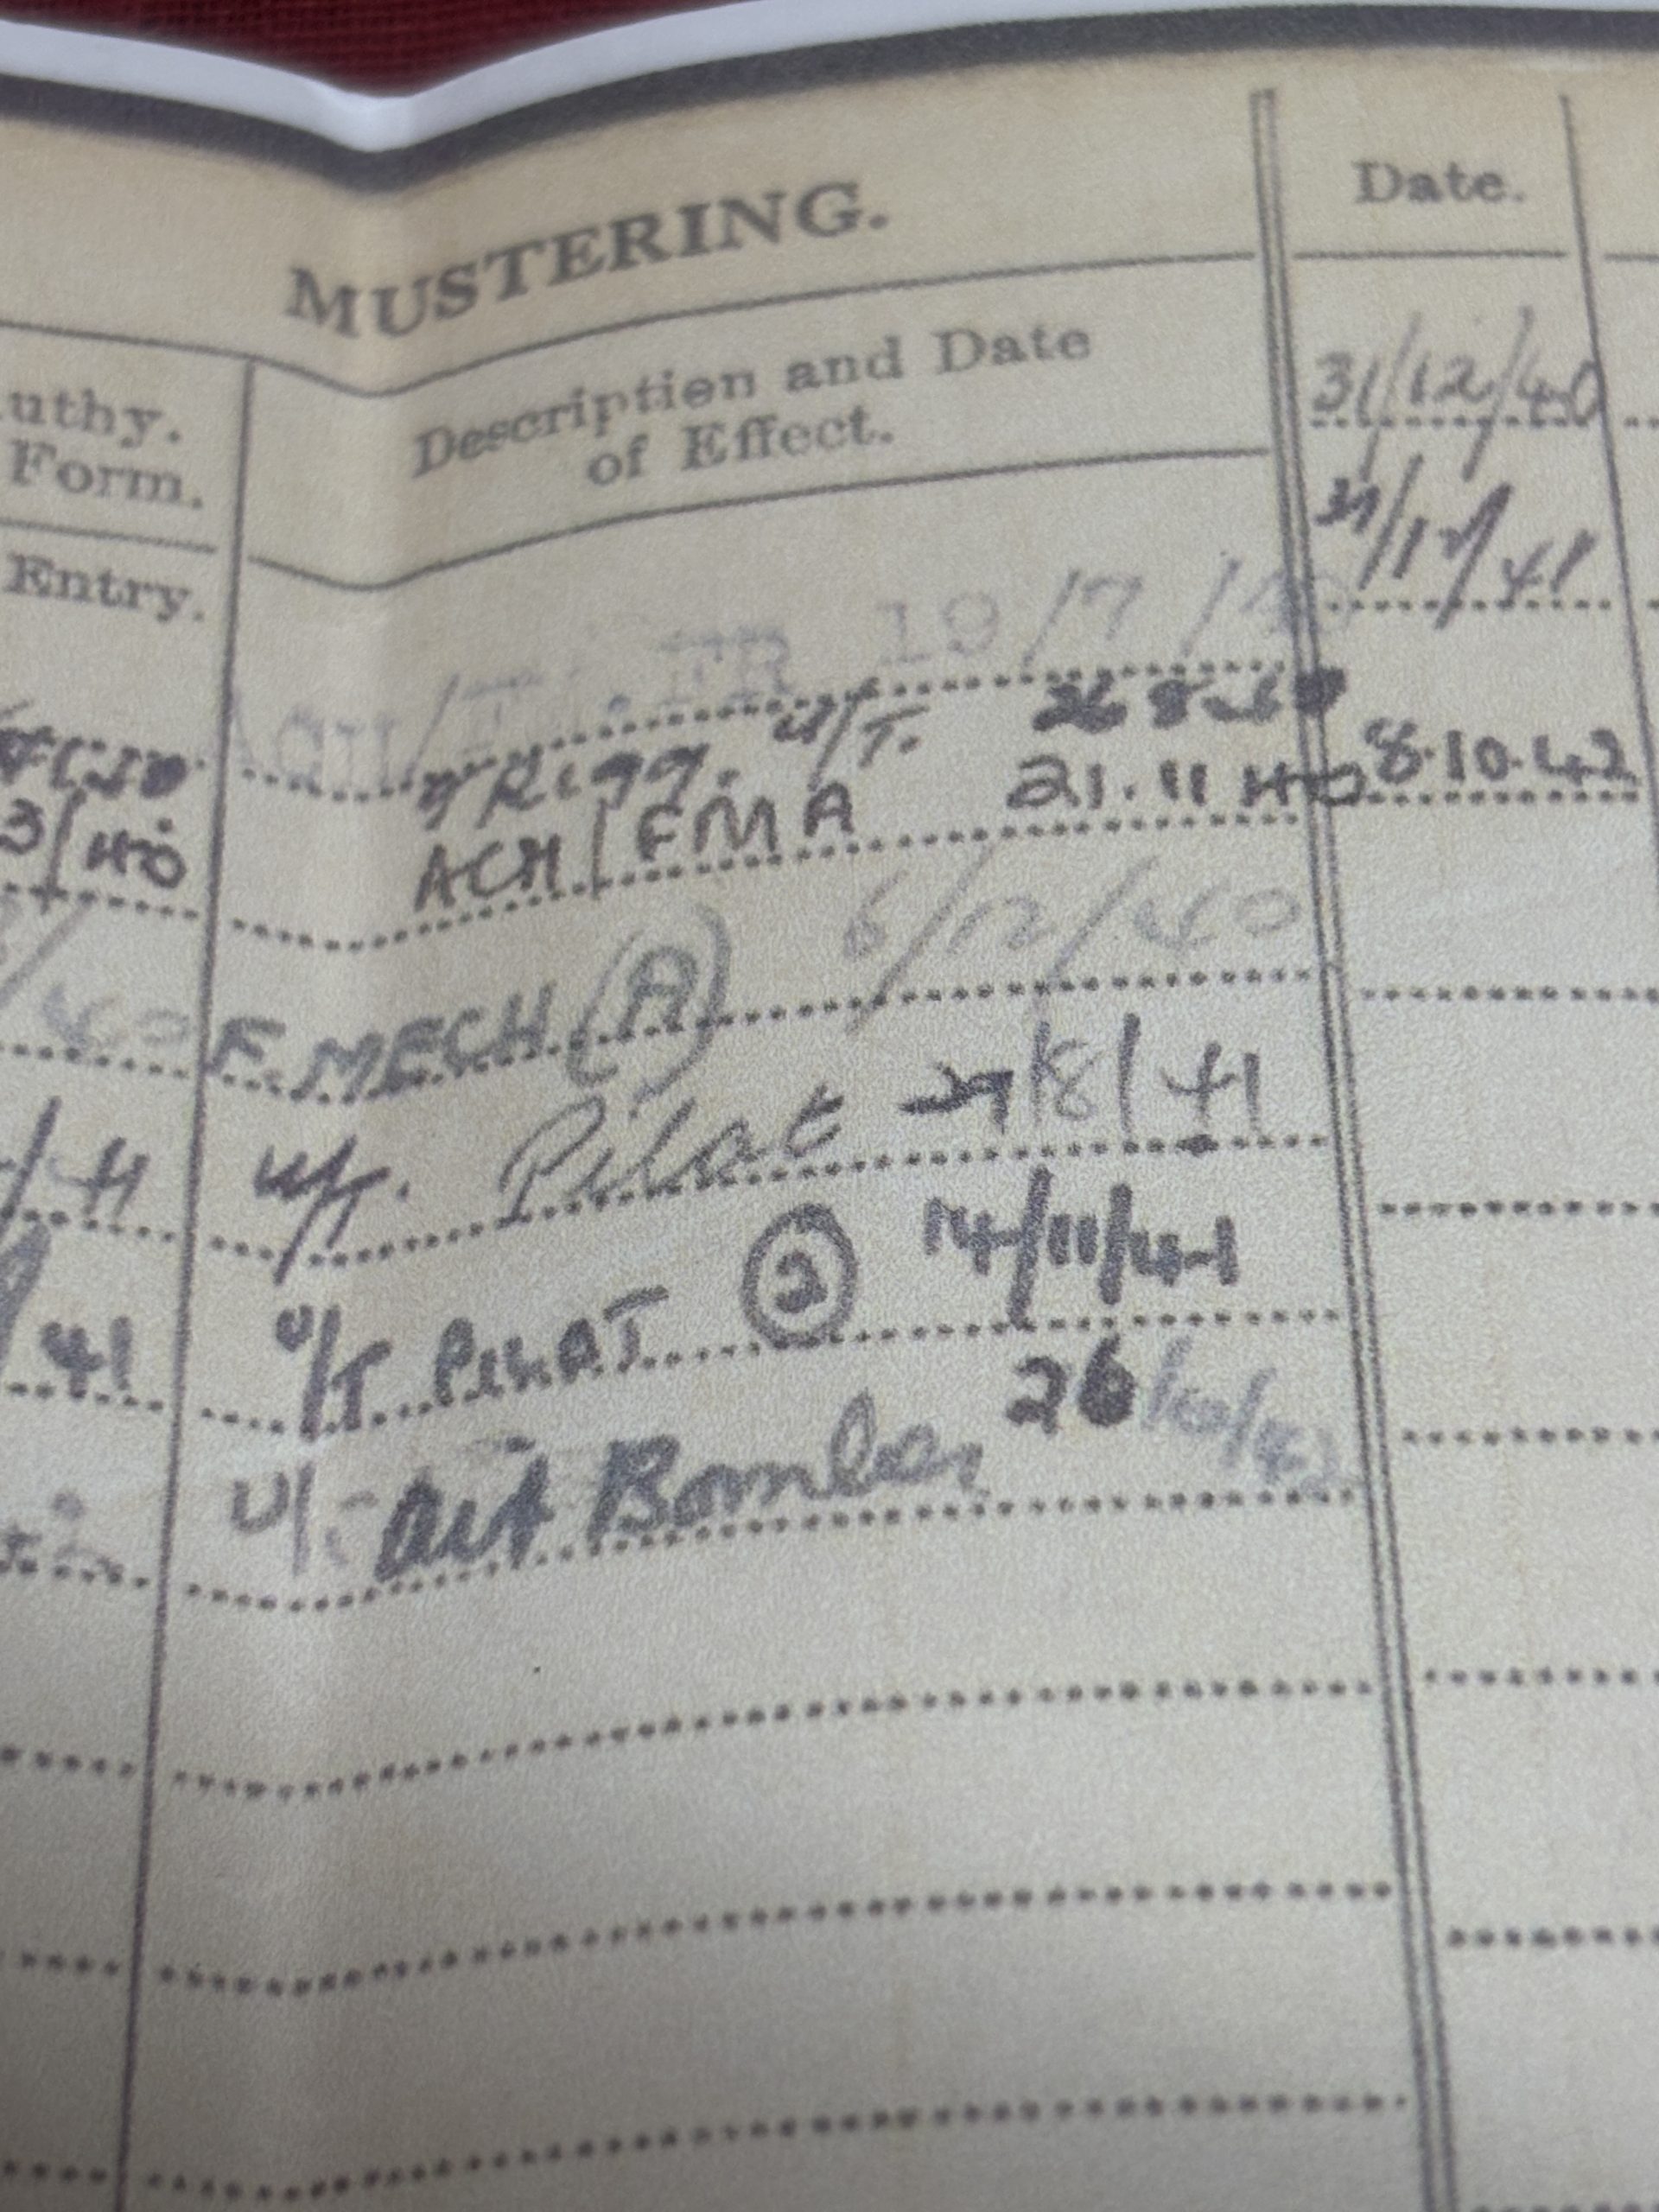 MUSTERING.
Date.
uthy.
Form.
Description and Date
of Effect.
Entry.
31/12/40
31/12/41
ACH/ 19/7/
Rigg. U/T. 26 8
ACH/FMA 21.11 40
8.10.42
3/40
F.MECH (A) 6/12/40
40
U/T. Pilot 29/8/41
/41
U/T PILOT ② 14/11/41
41
U/ Air Bomber 26/10/42